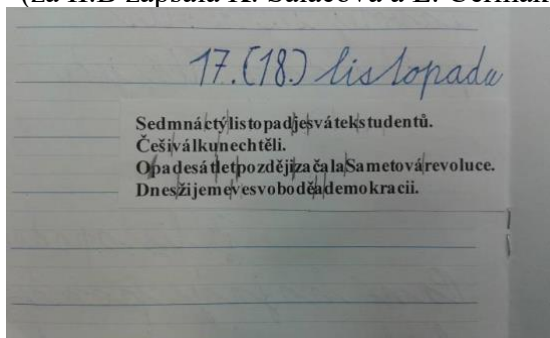 (za II.B zapsala K. Salačová a E. Čermák
17. (18.) listopadu
Sedmnáctýlistopadjesvátekstudentů.
Češiválkunechtěli.
OpadesátletpozdějizačalaSametovárevoluce.
Dnesžijemevesvoboděademokracii.